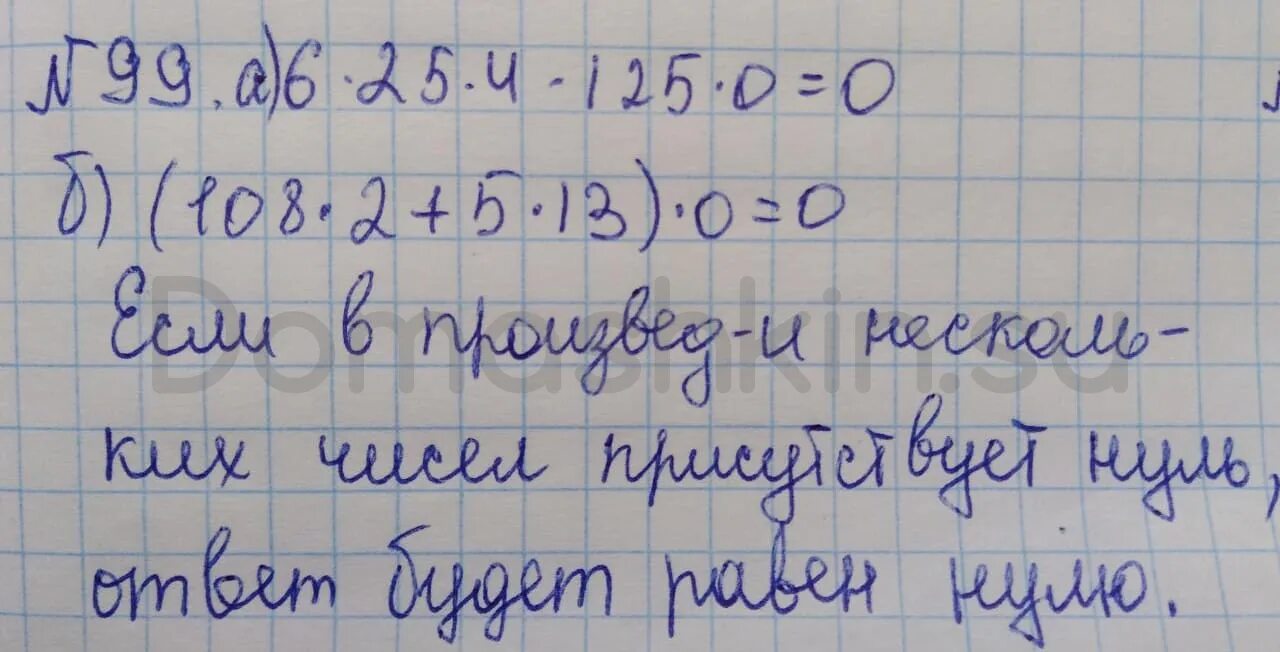 №99. а) 6 · 25 · 4 · 125 · 0 = 0
б) (108 · 2 + 5 · 13) · 0 = 0
Если в произвед-и несколь-
ких чисел присутствует нуль,
ответ будет равен нулю.
Domashkin.su